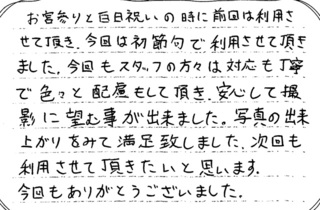 お宮参りと百日祝いの時に前回は利用さ
せて頂き、今回は初節句で利用させて頂き
ました。今回もスタッフの方々は対応も丁寧
で色々と配慮もして頂き、安心して撮
影に望む事が出来ました。写真の出来
上がりをみて満足致しました。次回も
利用させて頂きたいと思います。
今回もありがとうございました。